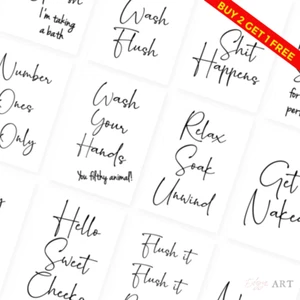 I'm taking
a bath
Wash
Flush
BUY 2 GET 1 FREE
Shit
Happens
for
Number
Ones
Only
Wash
Your
Hands
You filthy animal!
Relax
Soak
Unwind
Get
Naked
Hello
Sweet
Cheeks
Flush it
Flush it
ART